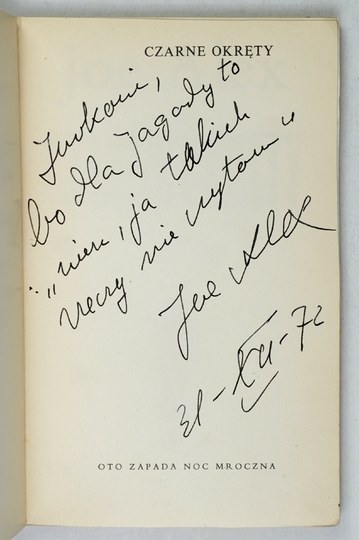 CZARNE OKRĘTY
Jurkowi,
bo dla Jagody to
"nie, ja takich
rzeczy nie czytam"
Joe Alex
31-XII-72
OTO ZAPADA NOC MROCZNA